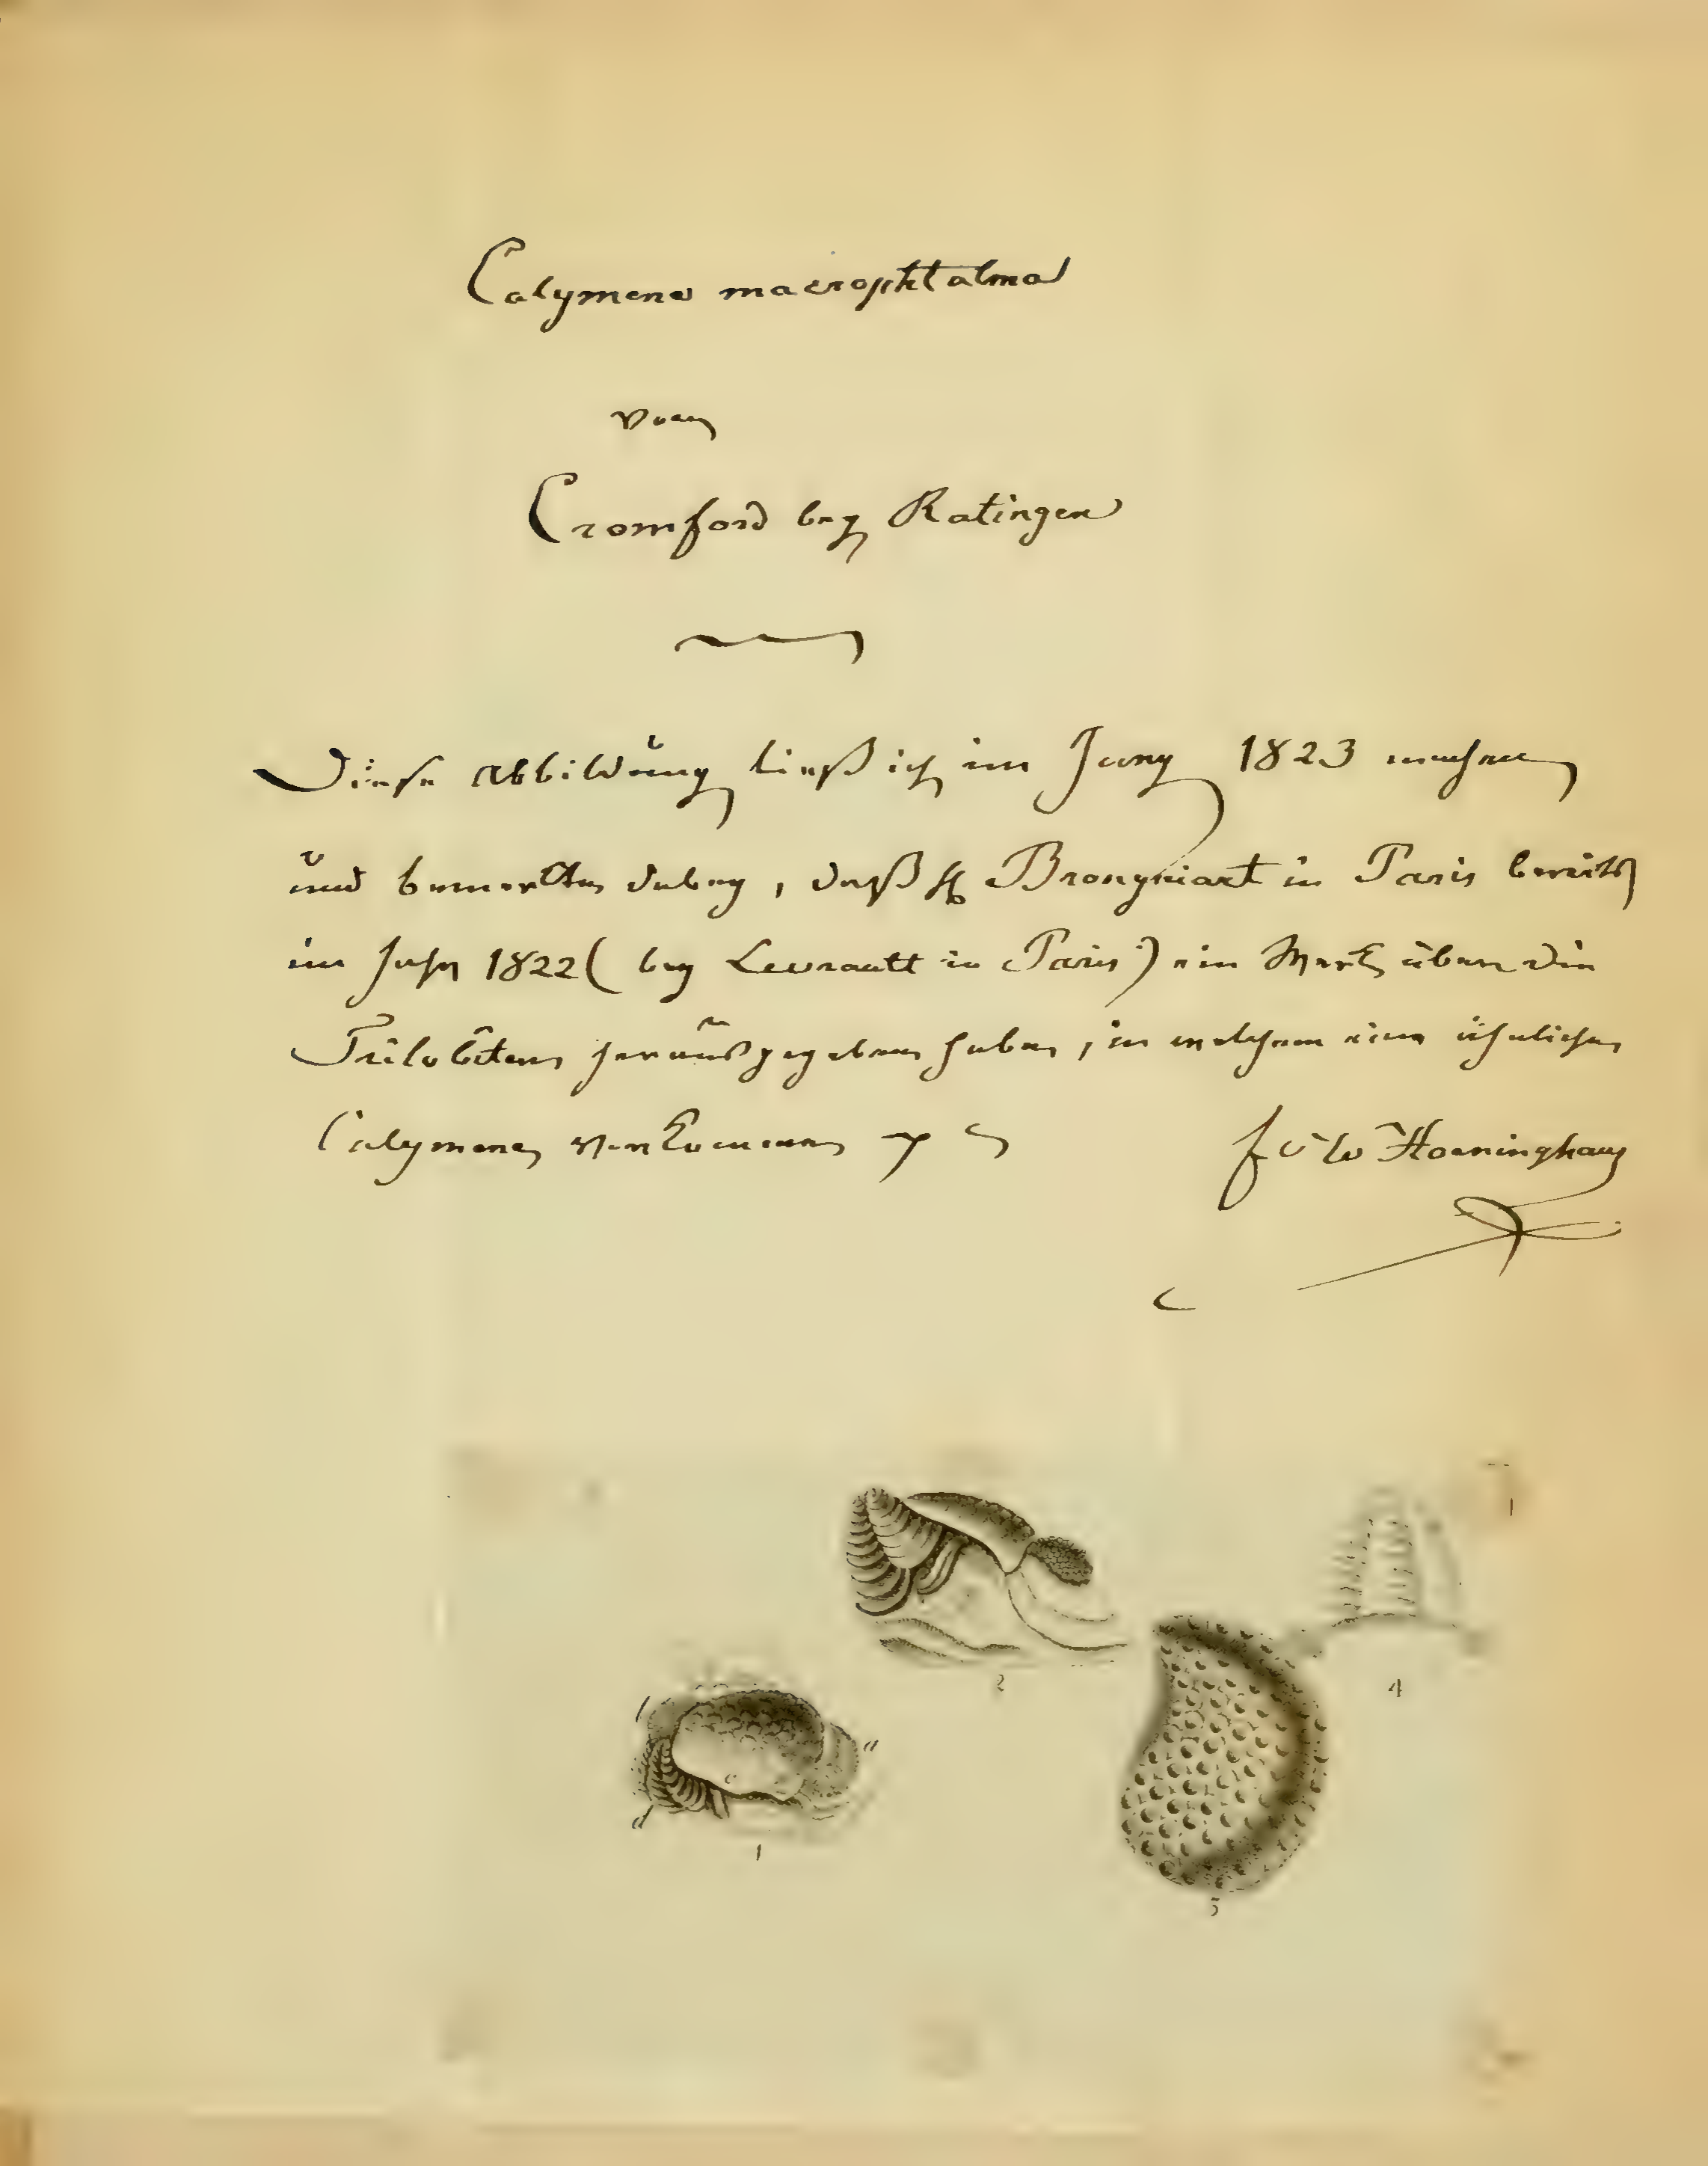 Calymene macrophtalma
von
Cromford bey Ratingen
Diese Abbildung ließ ich im Juny 1823 machen
und bemerkte dabey, daß H Brongniart in Paris bereits
im Jahr 1822 (bey Levrault in Paris) ein Werk über die
Trilobiten herausgegeben habe, in welchem eine ähnliche
Calymene vorkommen
f W Hoeninghaus
1
2
4
a
c
d
1
3